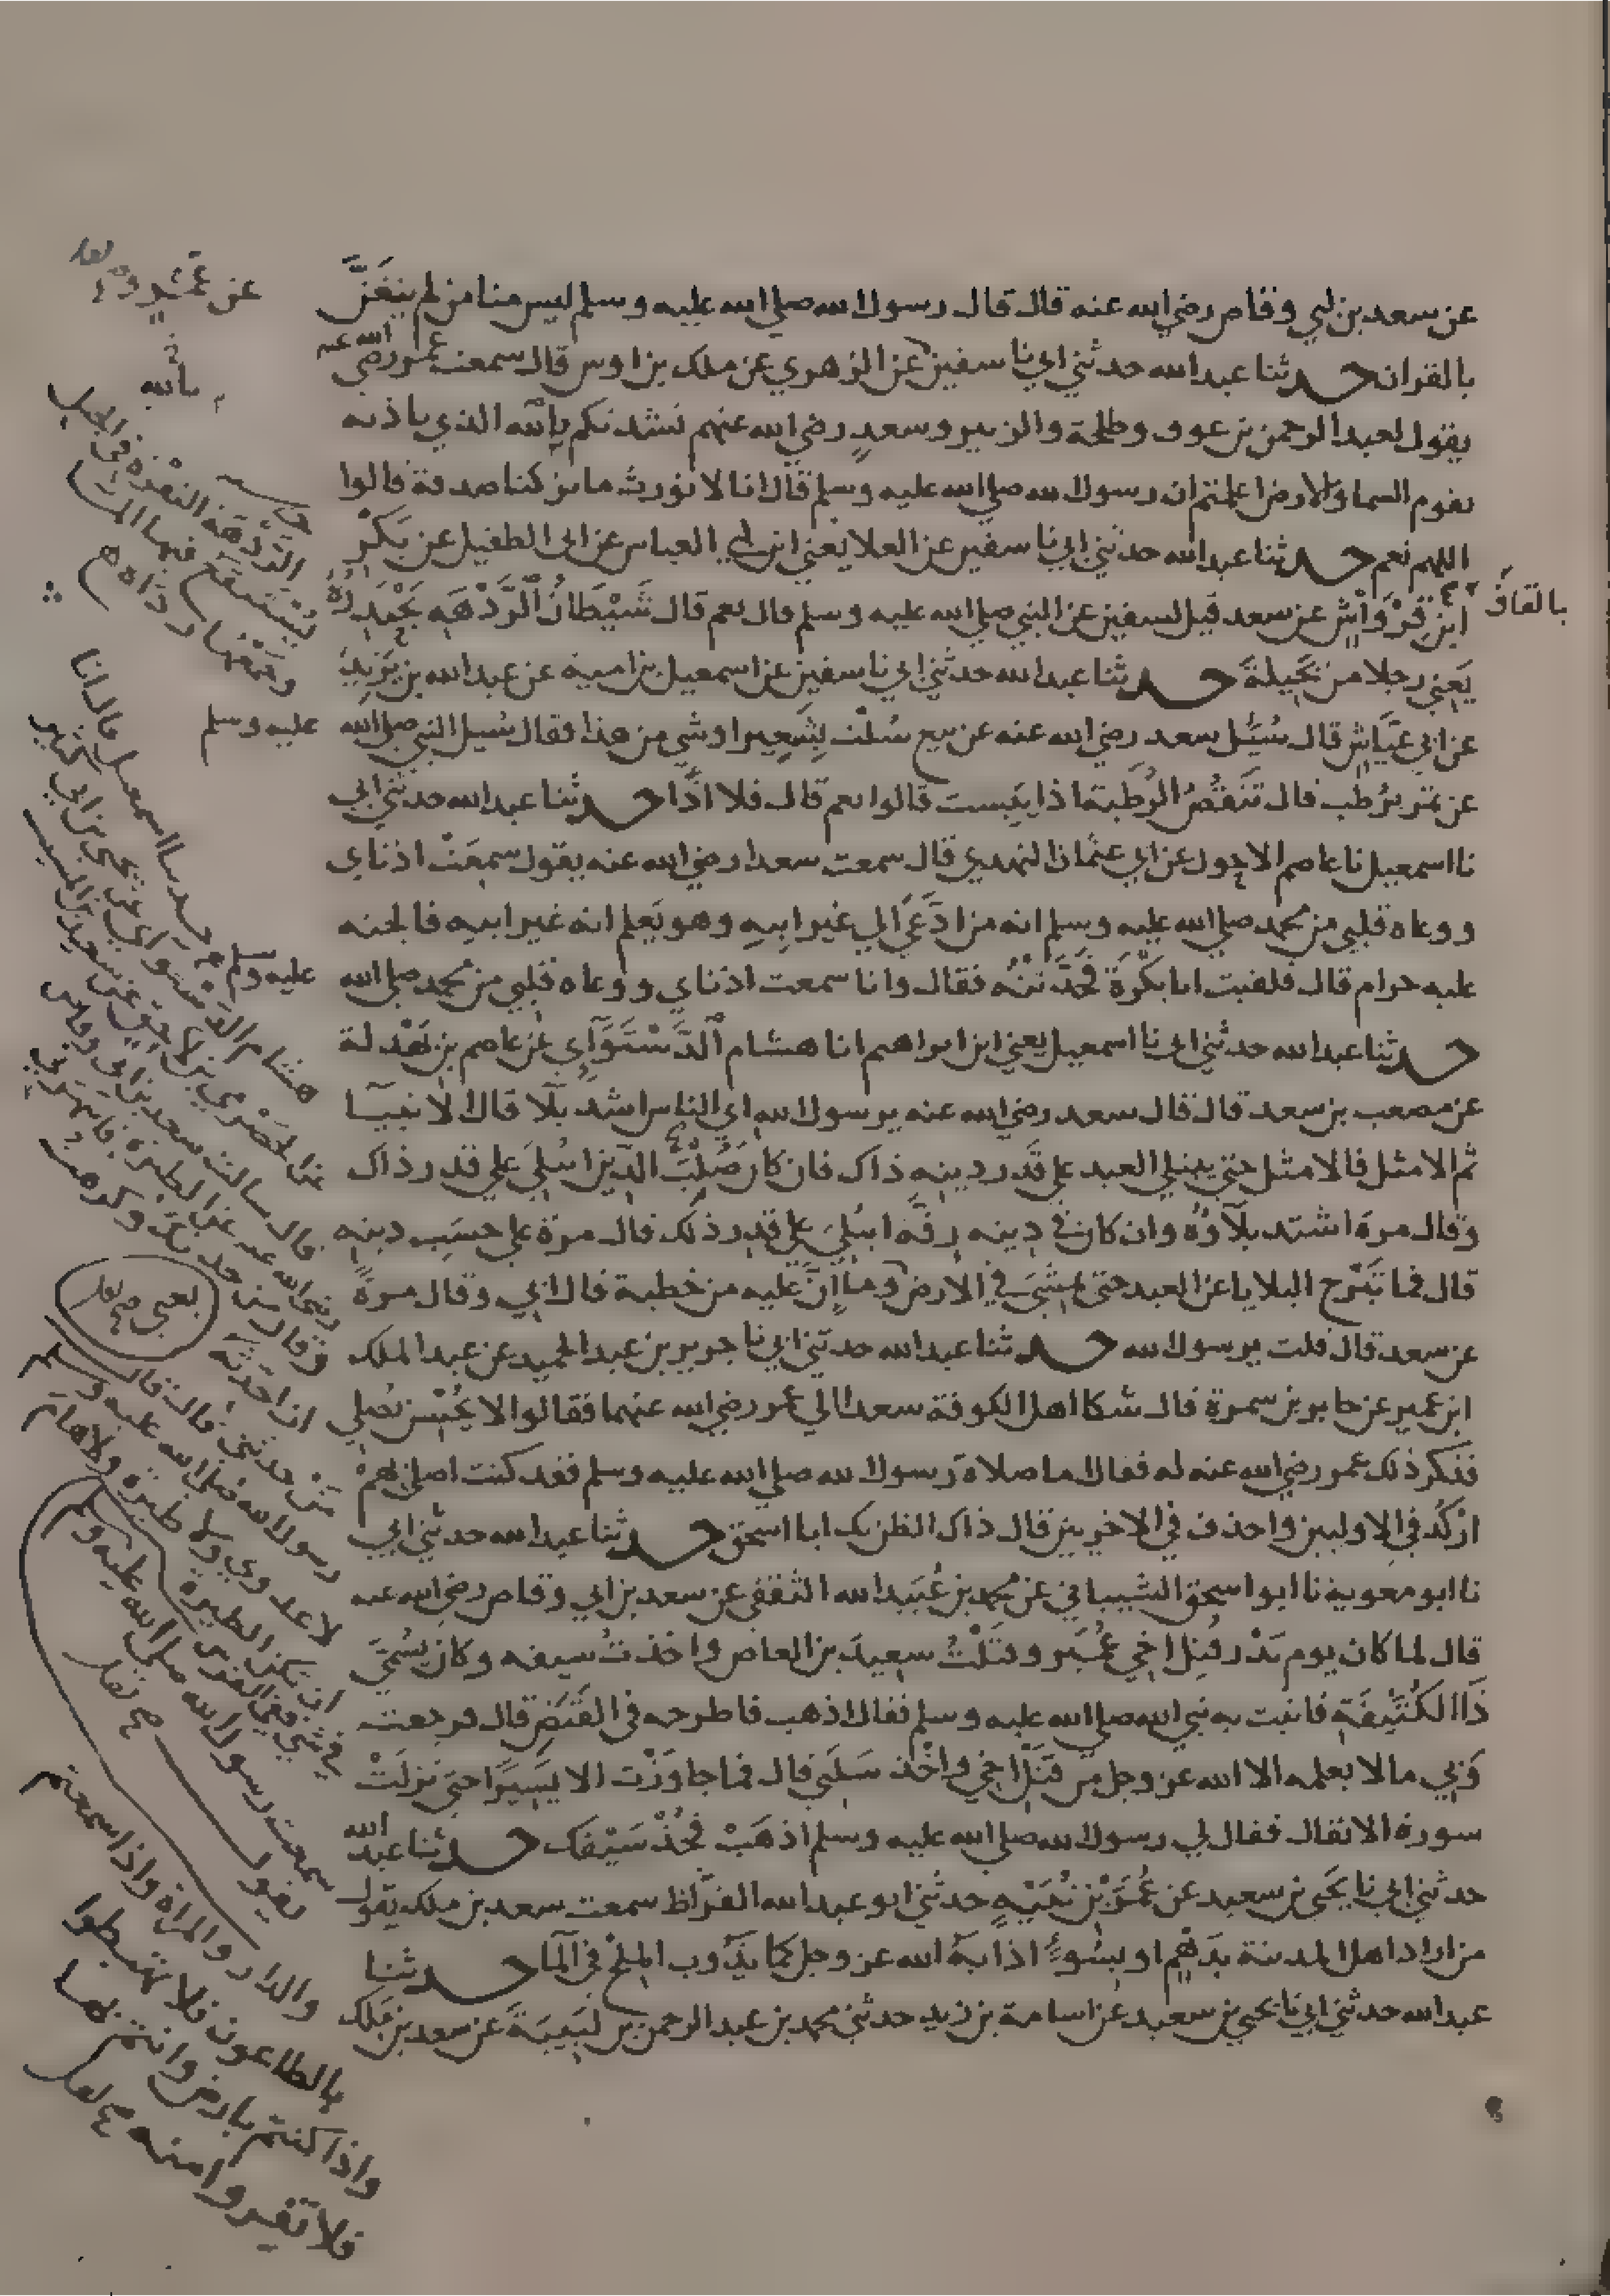 عن سعد بن ابي وقاص رضي الله عنه قال قال رسول الله صلى الله عليه وسلم ليس منا من لم يتغنَّ
بالقران حدثنا عبد الله حدثني ابي نا سفين عن الزهري عن ملك بن اوس قال سمعت عمر رضي الله عنه
يقول لعبد الرحمن بن عوف وطلحة والزبير وسعدٍ رضي الله عنهم نَشدتكم بالله الذي باذنه
تقوم السما والارض اعلمتم ان رسول الله صلى الله عليه وسلم قال انا لا نورث ما تركنا صدقة قالوا
اللهم نعم حدثنا عبد الله حدثني ابي نا سفين عن العلا يعني ابن ابي العباس عن ابي الطفيل عن بَكْرِ
ابن قِرْوَاشٍ عن سعد قيل لسفين عن النبي صلى الله عليه وسلم قال نعم قال شَيْطَانُ الرَّدْهَه يَحْتَدِرُهُ
بالقاف
يَعني رجلا من بَجِيلةَ حدثنا عبد الله حدثني ابي نا سفين عن اسمعيل بن امية عن عبد الله بن يَزِيدَ
عن ابي عيَّاشٍ قال سُئِل سعد رضي الله عنه عن بيع سُلْت بِشَعِير او شي من هذا فقال سُيل النبي صلى الله عليه وسلم
عن تمر برُطَب فقال تَنقُصُ الرُطَبة اذا يَبِست قالوا نعم قال فلا اذًا حدثنا عبد الله حدثني ابي
نا اسمعيل نا عاصم الاحول عن ابي عثمان النهدي قال سمعت سعدا رضي الله عنه يقول سمعَتْ اذناي
ووعاه قلبي من محمد صلى الله عليه وسلم انه من ادَّعَى الي غير ابِيهِ وهو يَعلم انه غير ابيه فالجنه
عليه حرام قال فلقيت ابا بَكْرَةَ فَحدَّثتُه فقال وانا سمعت اذناي ووعاه قلبي من محمد صلى الله عليه وسلم
حدثنا عبد الله حدثني ابي نا اسمعيل يعني ابن ابراهيم انا هشام الدَّسْتَوَآي عن عاصم بن بَهْدلة
عن مصعب بن سعد قال قال سعد رضي الله عنه يرسول الله اي الناس اشد بلَا قال الانبيآ
ثم الامثل فالامثل حتى يبتلي العبد علي قَدر دينه ذاك فان كان صُلْبَ الدِّين ابتُلِيَ علي قدر ذاك
وقال مرة اشتد بلآؤهُ وان كان في دينه رِقَّه ابتُليَ علي قدر ذلك قال مرة علي حسَب دينه
قال فما تَبْرح البلايا عن العبد حتى يمشيَ في الارض وما اِنْ عليه من خطية قال ابي وقال مرةً
عن سعد قال قلت يرسول الله حدثنا عبد الله حدثني ابي نا جرير بن عبد الحميد عن عبد الملك
ابن عمير عن جابر بن سمرة قال شكا اهل الكوفة سعدا الي عمر رضي الله عنهما فقالوا لا يُحْسِن يُصَلي
فذكر ذلك عمر رضي الله عنه له فقال اما صلاة رسول الله صلى الله عليه وسلم فقد كنت اصلي لهمْ
ازكُد في الاوليين واحذف في الاخريين قال ذاك الظن بك ابا اسحق حدثنا عبد الله حدثني ابي
نا ابو معوية نا ابو اسحق الشيباني عن محمد بن عُبَيد الله الثقفي عن سعد بن ابي وقاص رضي الله عنه
قال لما كان يوم بَدْر قُتِل اخي عُمَير وقتَلْتُ سعيدَ بن العاص واخذتُ سيفه وكان يُسمَّى
ذَا الكُتَيْفَة فاتيت به نبي الله صلى الله عليه وسلم فقال اذهب فاطرحه في القَبَضِ قال فرجعت
وَبي ما لا يعلمه الا الله عز وجل من قَتْل اخي واَخْذ سَلَبي قال فما جاوَزْت الا يَسِيرًا حتى نزلَتْ
سورة الانفال فقال لي رسول الله صلى الله عليه وسلم اذهَبْ فخُذْ سَيْفَك حدثنا عبد الله
حدثني ابي نا يحَيى بن سعيد عن عُمَرَ بْن نُبَيْهٍ حدثني ابو عبد الله القرّاظ سمعت سعد بن ملك يقول
من اراد اهل المدينة بدَهْمٍ او بسُوءٍ اذابهُ الله عز وجل كما يَذُوب المِلْحُ في الما حدثنا
عبد الله حدثني ابي نا يحيى بن سعيد عن اسامة بن زيد حدثني محمد بن عبد الرحمن بن لَبِيبَةَ عن سعد بن ملك
الرَّدْهَة النقرة في الجبل
يَسْتَنقع فيها الما
وجَمْعُها رِدَاه
حدثنا اسمعيل قال انا
هشام الدَّسْتوآي عن يحيى بن ابي كثير
عن الحضرمي بن لاحق عن سعيد بن المسيب
قال سالت سعد بن ابي وقاص
رضي الله عنه عن الطيرة فانتهرني
وقال من حدثك وكرهت
ان احدثه
مَنْ حدثني قال قال
رسول الله صلى الله عليه وسلم
لا عدوي ولا طيرة ولا هام
ان تكن الطيرة
في شي ففي الفرس
والمراة والدار واذا سمعتم
بالطاعون فلا تهبطوا
واذا كنتم بارض وانتم بها
فلا تفروا منه
سمعت رسول الله صلى الله عليه وسلم
يقول